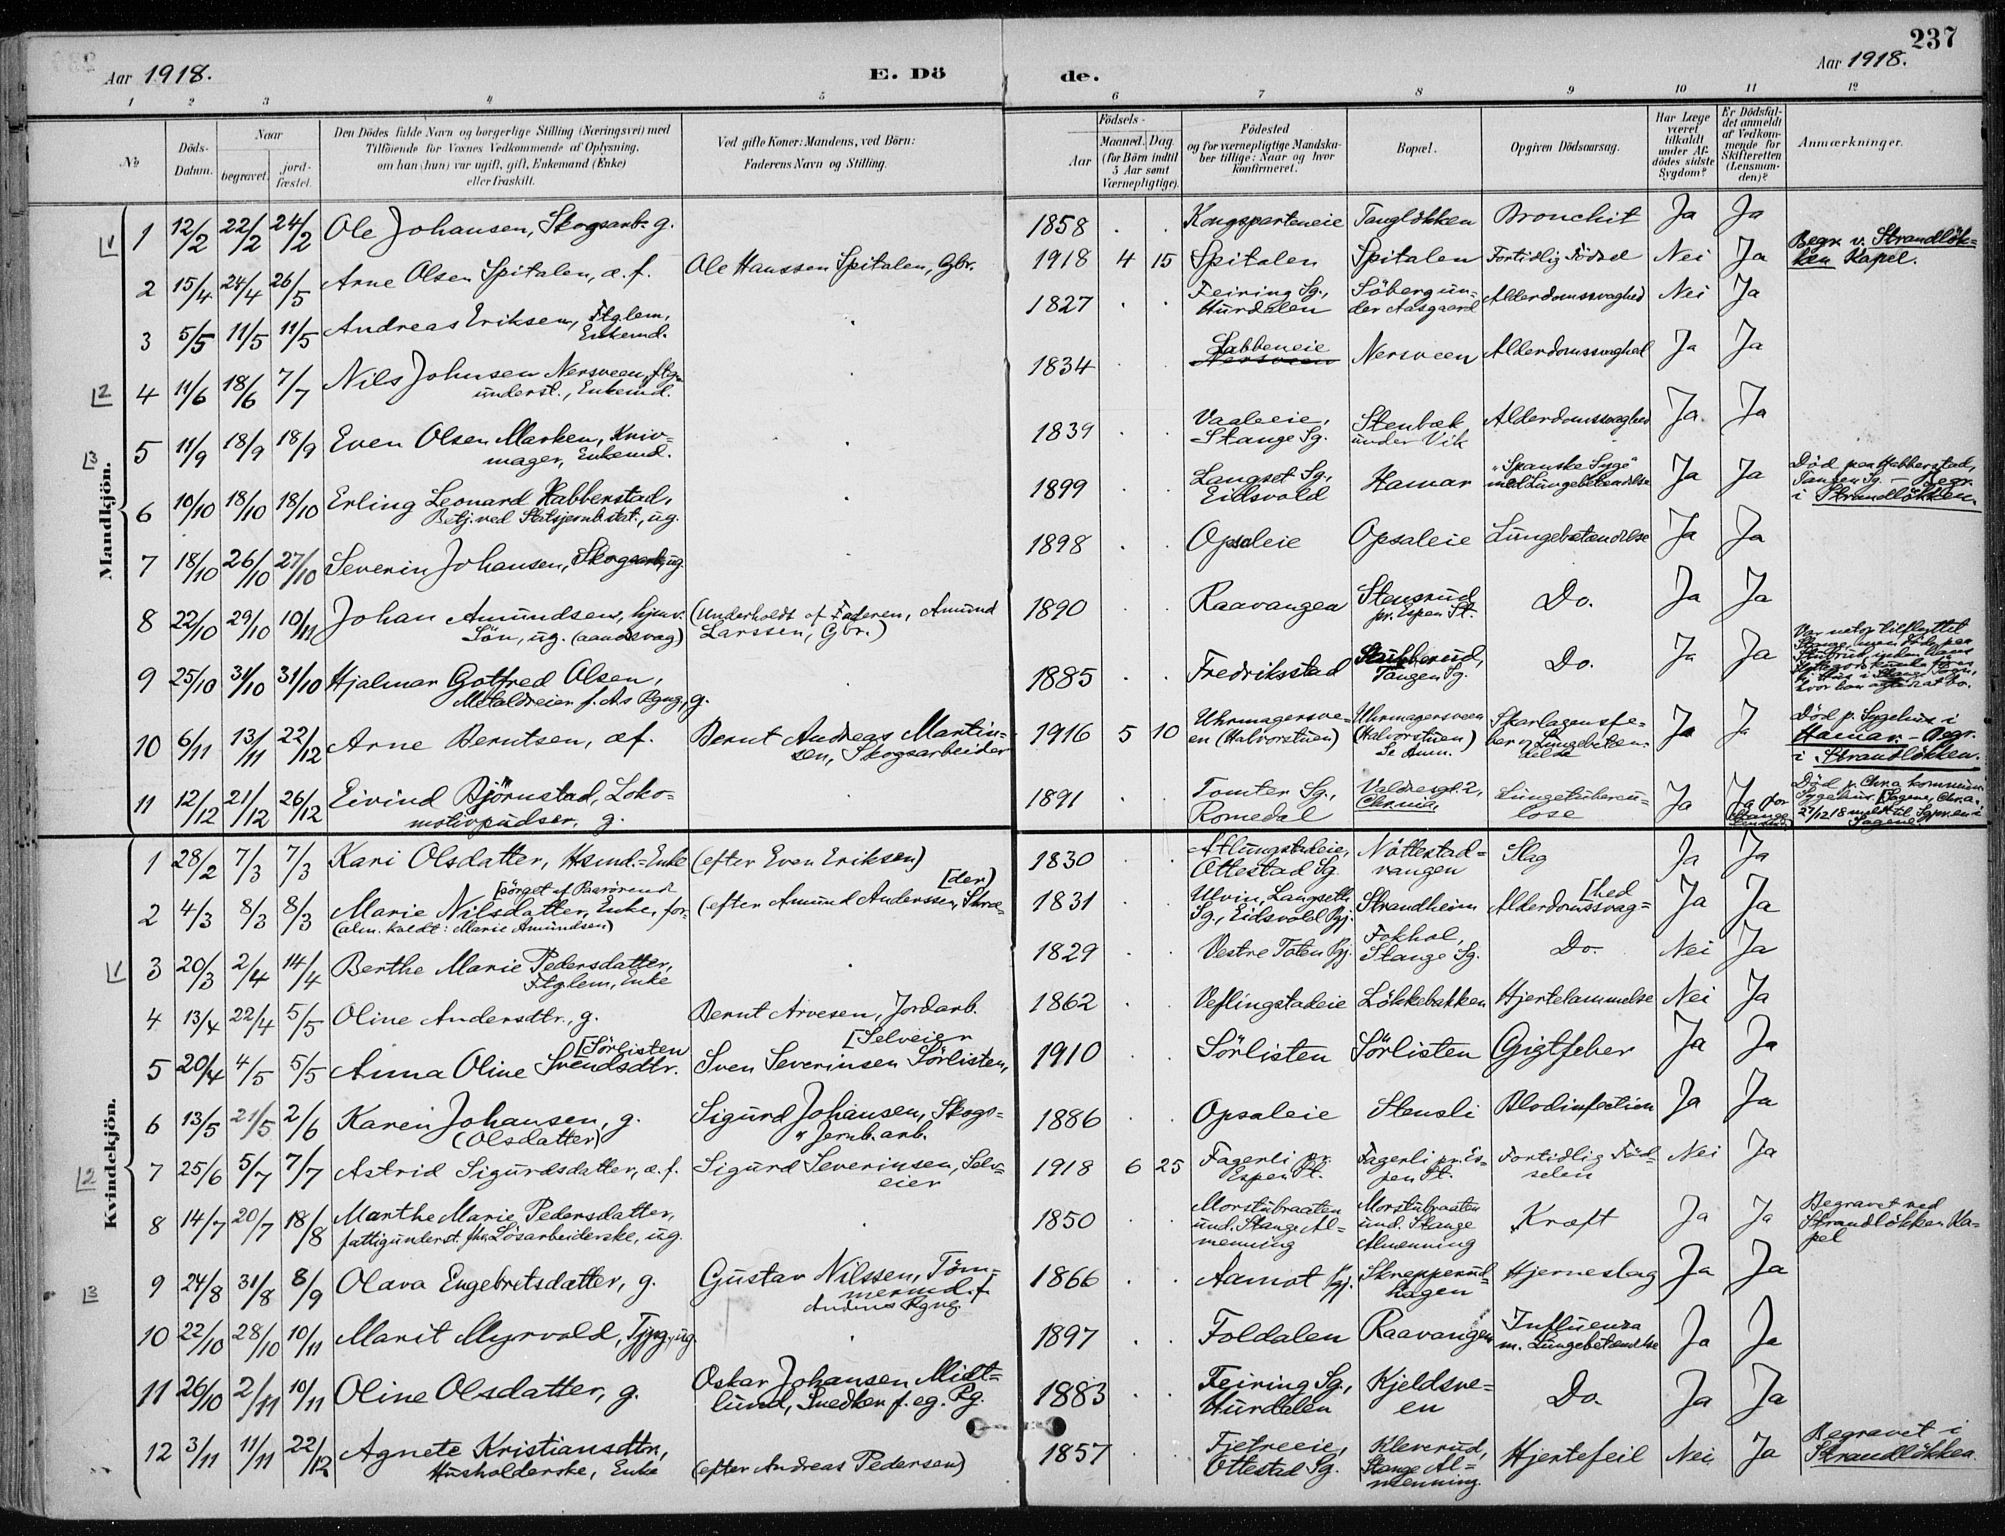 237
Aar 1918.
E. Dö de.
Aar 1918.
1 2 3 4 5 6 7 8 9 10 11 12
No
Döds-Datum.
Naar
begravet.
jord-fæstet.
Den Dödes fulde Navn og borgerlige Stilling (Næringsvei) med
Tilföiende for Voxnes Vedkommende af Oplysning,
om han (hun) var ugift, gift, Enkemand (Enke)
eller fraskilt.
Ved gifte Koner: Mandens, ved Börn:
Faderens Navn og Stilling.
Födsels-
Aar
Maaned. Dag.
(for Börn indtil
5 Aar samt
Værnepligtige).
Födested
og for værnepligtige Mandska-
ber tillige: Naar og hvor
konfirmeret.
Bopæl.
Opgiven Dödsaarsag.
Har Læge
været
tilkaldt
under Af-
dödes sidste
Sygdom?
Er Dödsfal-
det anmeldt
af Vedkom-
mende for
Skifteretten
(Lensman-
den)?
Anmærkninger.
Mandkjön.
1 12/2 22/2 24/2 Ole Johansen, Skogsarb. g. 1858 . . Kongsparteneie Tangløkken Bronchit Ja Ja
2 15/4 24/4 26/5 Arne Olsen Spitalen, æ. f. Ole Hanssen Spitalen, Gbr. 1918 4 15 Spitalen Spitalen Fortidlig Födsel Nei Ja Begr. v. Strandlök-
ken Kapel.
3 5/5 11/5 11/5 Andreas Eriksen, Ftglem,
Enkemd. 1827 . . Feiring Sg.,
Hurdalen Söberg un-
der Aasgaard Alderdomssvaghed Nei Ja
4 11/6 18/6 7/7 Nils Johnsen Nersveen, ftg.
underst., Enkemd. 1834 . . Labbeneie
Nersveen Nersveen Alderdomssvaghed Ja Ja
5 11/9 18/9 18/9 Even Olsen Marken, Kniv-
mager, Enkemd. 1839 . . Vaaleeie,
Stange Sg. Stenbæk
under Vik Alderdomssvaghed Ja Ja
6 10/10 18/10 18/10 Erling Leonard Habberstad,
Betj. ved Statsjernb.stat., ug. 1899 . . Langset Sg.,
Eidsvold Hamar "Spanske Syge"
med Lungebetændelse Ja Ja Död paa Habberstad,
Tangen Sg. - Begr.
i Strandlökken.
7 18/10 26/10 27/10 Severin Johansen, Skogsarb., ug. 1898 . . Opsaleie Opsaleie Lungebetændelse Ja Ja
8 22/10 29/10 10/11 Johan Amundsen, hjmv.
Sön, ug. (aandssvag) (Underholdt af Faderen, Amund
Larssen, Gbr.) 1890 . . Raavangen Stensrud
pr. Espen St. Do. Ja Ja
9 25/10 31/10 31/10 Hjalmar Gotfred Olsen,
Metaldreier f. A.s Rgng., g. 1885 . . Fredriksstad Stubberud,
Tangen Sg. Do. Ja Ja Var netop tilflyttet
10 6/11 13/11 22/12 Arne Berntsen, æf. Bernt Andreas Martin-
sen, Skogsarbeider 1916 5 10 Uhrmagersve-
en (Halvorstuen) Uhrmagersveen
(Halvorstuen)
Se Anm. Skarlagensfe-
ber og Lungebetæn-
delse Ja Ja Död p. Sygehus i
Hamar. - Begr.
i Strandlökken.
11 12/12 21/12 26/12 Eivind Björnstad, Loko-
motivpudser, g. 1891 . . Tomter Sg.,
Romedal Valdresgt. 2,
Chr.nia, Lungetuberku-
lose Ja Ja for
Stange Död p. Chr.a kommun.
Sygehus. [Sagene, Chr.a.
27/12 18 meldt til Sgpr.en i
Sagene
Kvindekjön.
1 28/2 7/3 7/3 Kari Olsdatter, Hsmd.=Enke (efter Even Eriksen) 1830 . . Atlungstadeie,
Ottestad Sg. Nöttestad-
vangen Slag Ja Ja
2 4/3 8/3 8/3 [sörget af Paarörende
Marie Nilsdatter, Enke, for-
(alm. kaldt: Marie Amundsen) [der)
(efter Amund Anderssen, Skræ- 1831 . . Ulvin, Langseth
Sg., Eidsvold Pgj. Strandheim [hed
Alderdomssvag- Ja Ja
3 20/3 2/4 14/4 Berthe Marie Pedersdatter,
Ftglem, Enke 1829 . . Vestre Toten Pgj. Fokhol,
Stange Sg. Do. Nei Ja
4 13/4 22/4 5/5 Oline Andersdtr., g. Bernt Arvesen, Jordarb. 1862 . . Veflingstadeie Lökkebakken Hjertelammelse Nei Ja
5 20/4 4/5 5/5 [Sörlisten
Anna Oline Svendsdtr. [Selveier
Sven Severinsen Sörlisten, 1910 . . Sörlisten Sörlisten Gigtfeber Ja Ja
6 13/5 21/5 2/6 Karen Johansen, g.
(Olsdatter) Sigurd Johansen, Skogs-
& Jernb. arb. 1886 . . Opsaleie Stensli Blodinfection Ja Ja
7 25/6 5/7 7/7 Astrid Sigurdsdatter, æ. f. Sigurd Severinsen, Selv-
eier 1918 6 25 Fagerli pr.
Espen St. Fagerli pr. Es-
pen St. Fortidlig Föd-
selen Nei Ja
8 14/7 20/7 18/8 Marthe Marie Pedersdatter,
fattigunderst. fhv. Lösarbeiderske, ug. 1850 . . Morstubraaten
und. Stange Al-
menning Morstubraaten
und. Stange
Almenning Kræft Ja Ja Begravet ved
Strandlökken Ka-
pel
9 24/8 31/8 8/9 Olava Engebretsdatter, g. Gustav Nilssen, Töm-
mermd. f.
Andens Rgng. 1866 . . Aamot Pgj. Skrepperud-
hagen Hjerneslag Ja Ja
10 22/10 28/10 10/11 Marit Myrvold, Tjpg., ug. 1897 . . Foldalen Raavangen Influenza
m. Lungebetændelse Ja Ja
11 26/10 2/11 10/11 Oline Olsdatter, g. Oskar Johansen Midt-
lund, Snedker f. eg. Rg. 1883 . . Feiring Sg.,
Hurdalen Kjeldsve-
en Do. Ja Ja
12 3/11 11/11 22/12 Agnete Kristiansdtr.,
Husholderske, Enke (efter Andreas Pedersen) 1857 . . Fjetreeie,
Ottestad Sg. Kleverud,
Stange Al-
menning Hjertefeil Nei Ja Begravet i
Strandlökken.